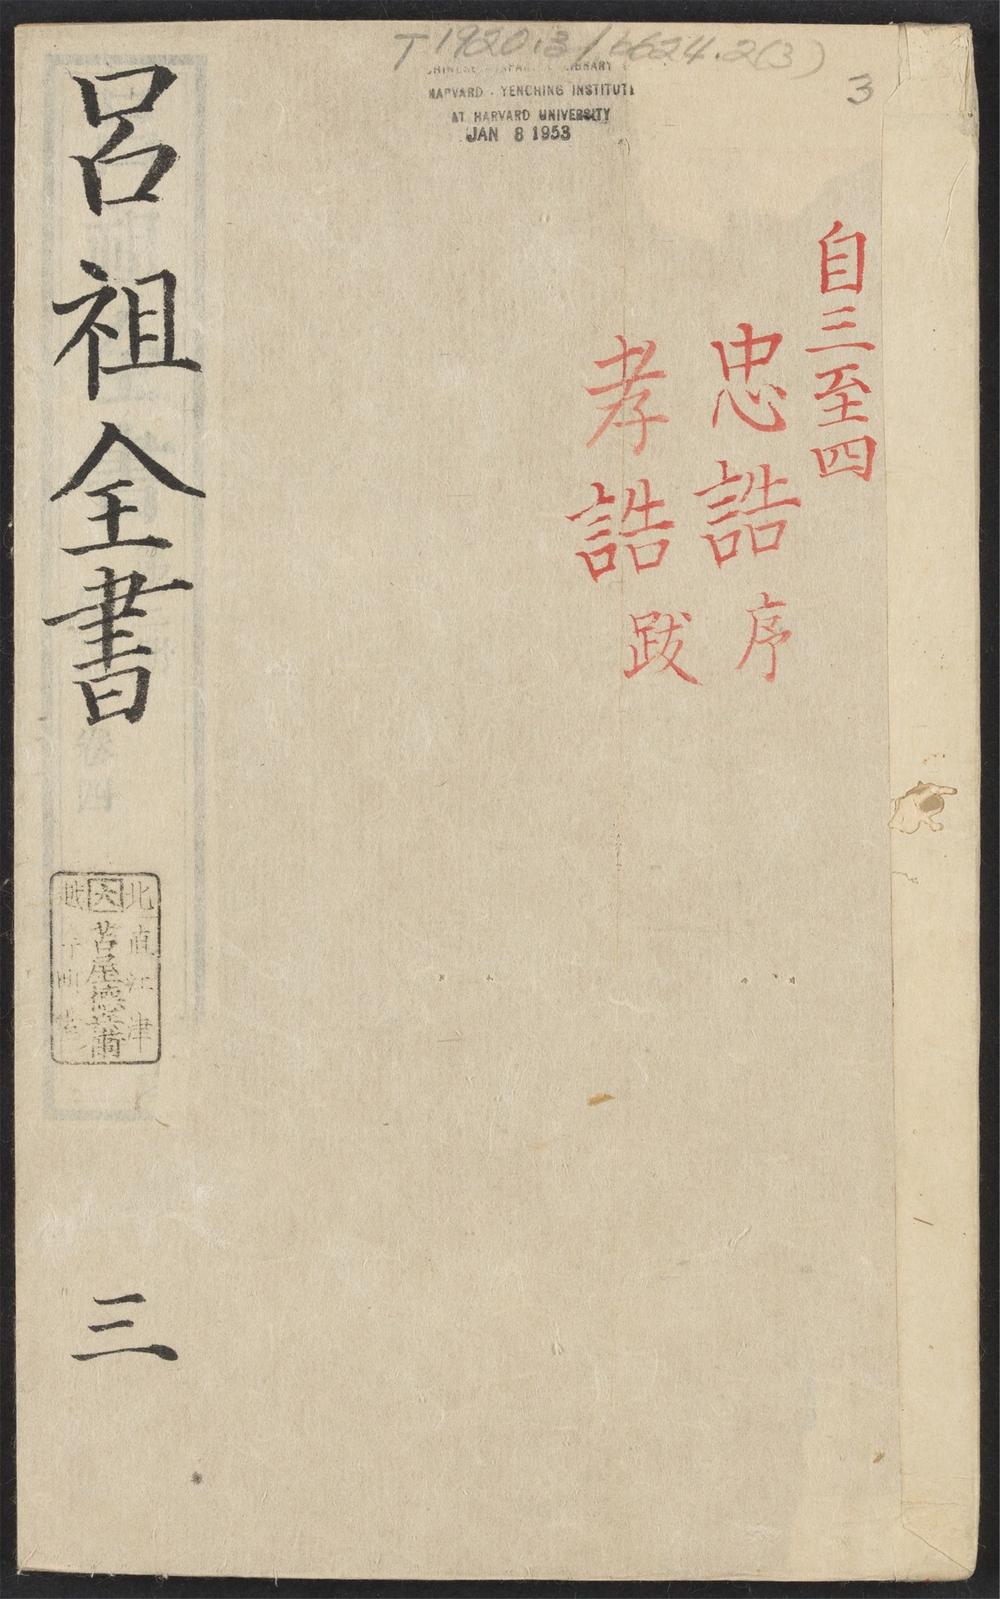 T 1920.3/6624.2(3)
HARVARD-YENCHING INSTITUTE
AT HARVARD UNIVERSITY
JAN 8 1953
3
自三至四
忠誥序
孝誥跋
呂祖全書
三
北直江津
六
卷四